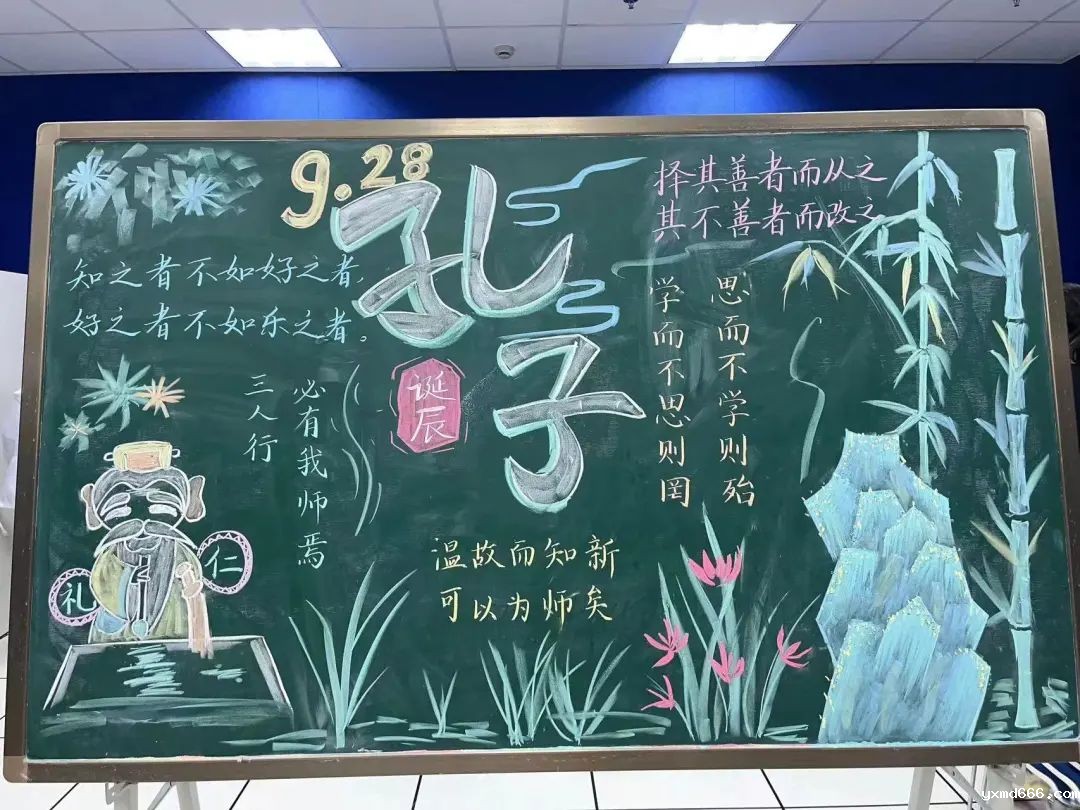 9.28
孔子
诞辰
择其善者而从之
其不善者而改之
知之者不如好之者，
好之者不如乐之者。
三人行
必有我师焉
学而不思则罔
思而不学则殆
温故而知新
可以为师矣
礼
仁
yxmd666.com